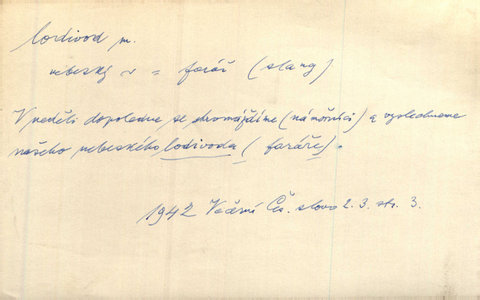 lodivod m.
nebeský ~ = farář (slang)
V neděli dopoledne se shromáždíme (námořníci) a vyslechneme
našeho nebeského lodivoda (faráře).
1942 Večerní Čes. slovo 2. 3. str. 3.